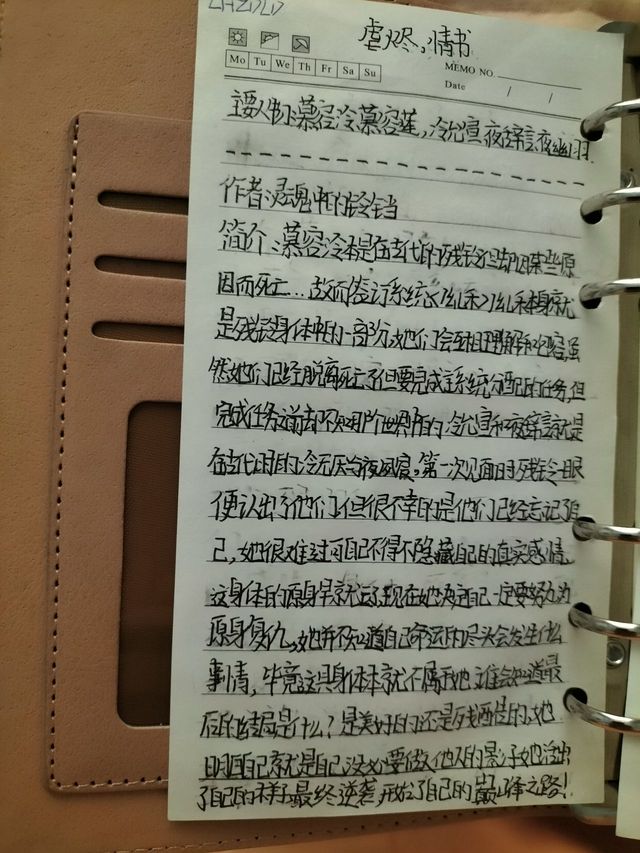 虐烬,情书
Mo Tu We Th Fr Sa Su
MEMO NO.
Date / /
主要人物:慕容冷慕容莲,冷尤宣夜缔言夜幽羽.
作者:灵魂中的铃铛
简介:慕容冷本是在古代的残铃汐却因某些原
因而死亡...故而签订系统
是残铃身体中的一部分,她们会互相理解和包容,虽
然她们已经脱离死亡了但要完成主系统分配的任务,但
完成任务之前却不知那个世界中的冷尤宣和夜缔言就是
在古代时的冷无辰夜威宸,第一次见面时残铃一眼
便认出了他们,但很不幸的是他们已经忘记了自
己,她很难过可自己不得不隐藏自己的真实感情、
这身体的原身早就逝了,现在她决定自己一定要努力为
原身复仇,她并不知道自己命运的尽头会发生什么
事情,毕竟这具身体本就不属于她,谁会知道最
后的结局是什么?是美好的还是残酷的,她
明白自己就是自己没必要做他人的影子她活出
了自己的样子最终逆袭,开始了自己的巅峰之路!